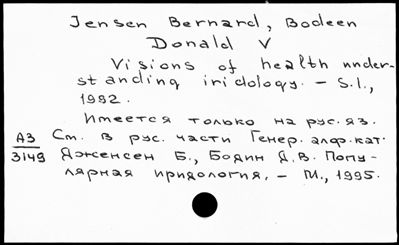 Jensen Bernard, Bodeen
Donald V
Visions of health under-
standing iridology. – S.l.,
1992.
Имеется только на рус. яз.
А3 См. в рус. части Генер. алф. кат.
3149 Дженсен Б., Бодин Д.В. Попу-
лярная иридология. – М., 1995.